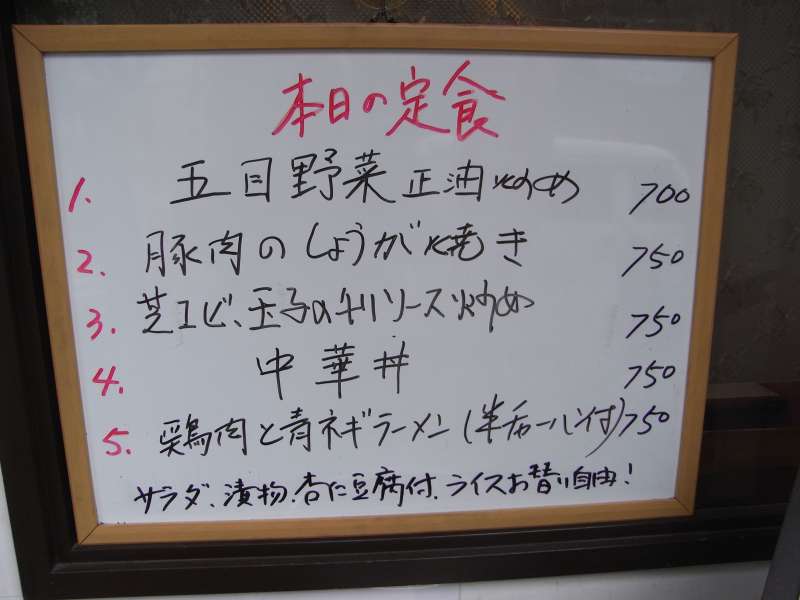 本日の定食
1. 五目野菜正油炒め 700
2. 豚肉のしょうが焼き 750
3. 芝エビ、玉子のチリソース炒め 750
4. 中華丼 750
5. 鶏肉と青ネギラーメン(半チャーハン付) 750
サラダ、漬物、杏仁豆腐付、ライスお替り自由!